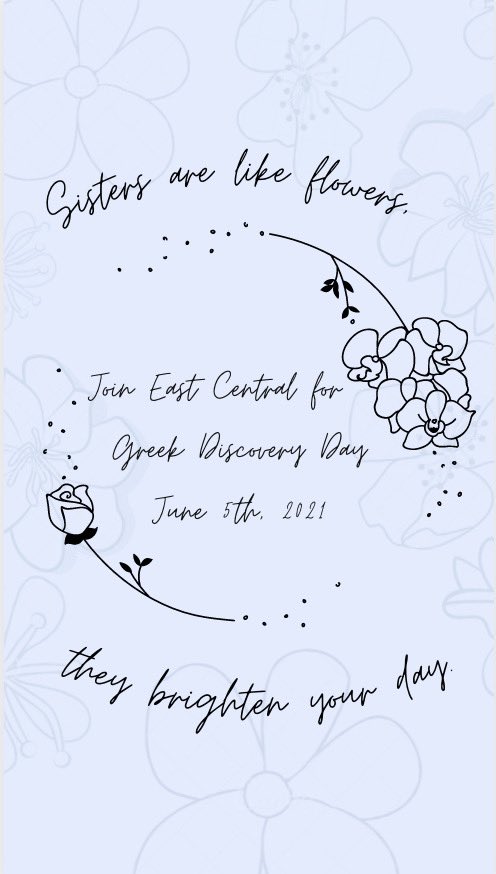 Sisters are like flowers,
Join East Central for
Greek Discovery Day
June 5th, 2021
they brighten your day.